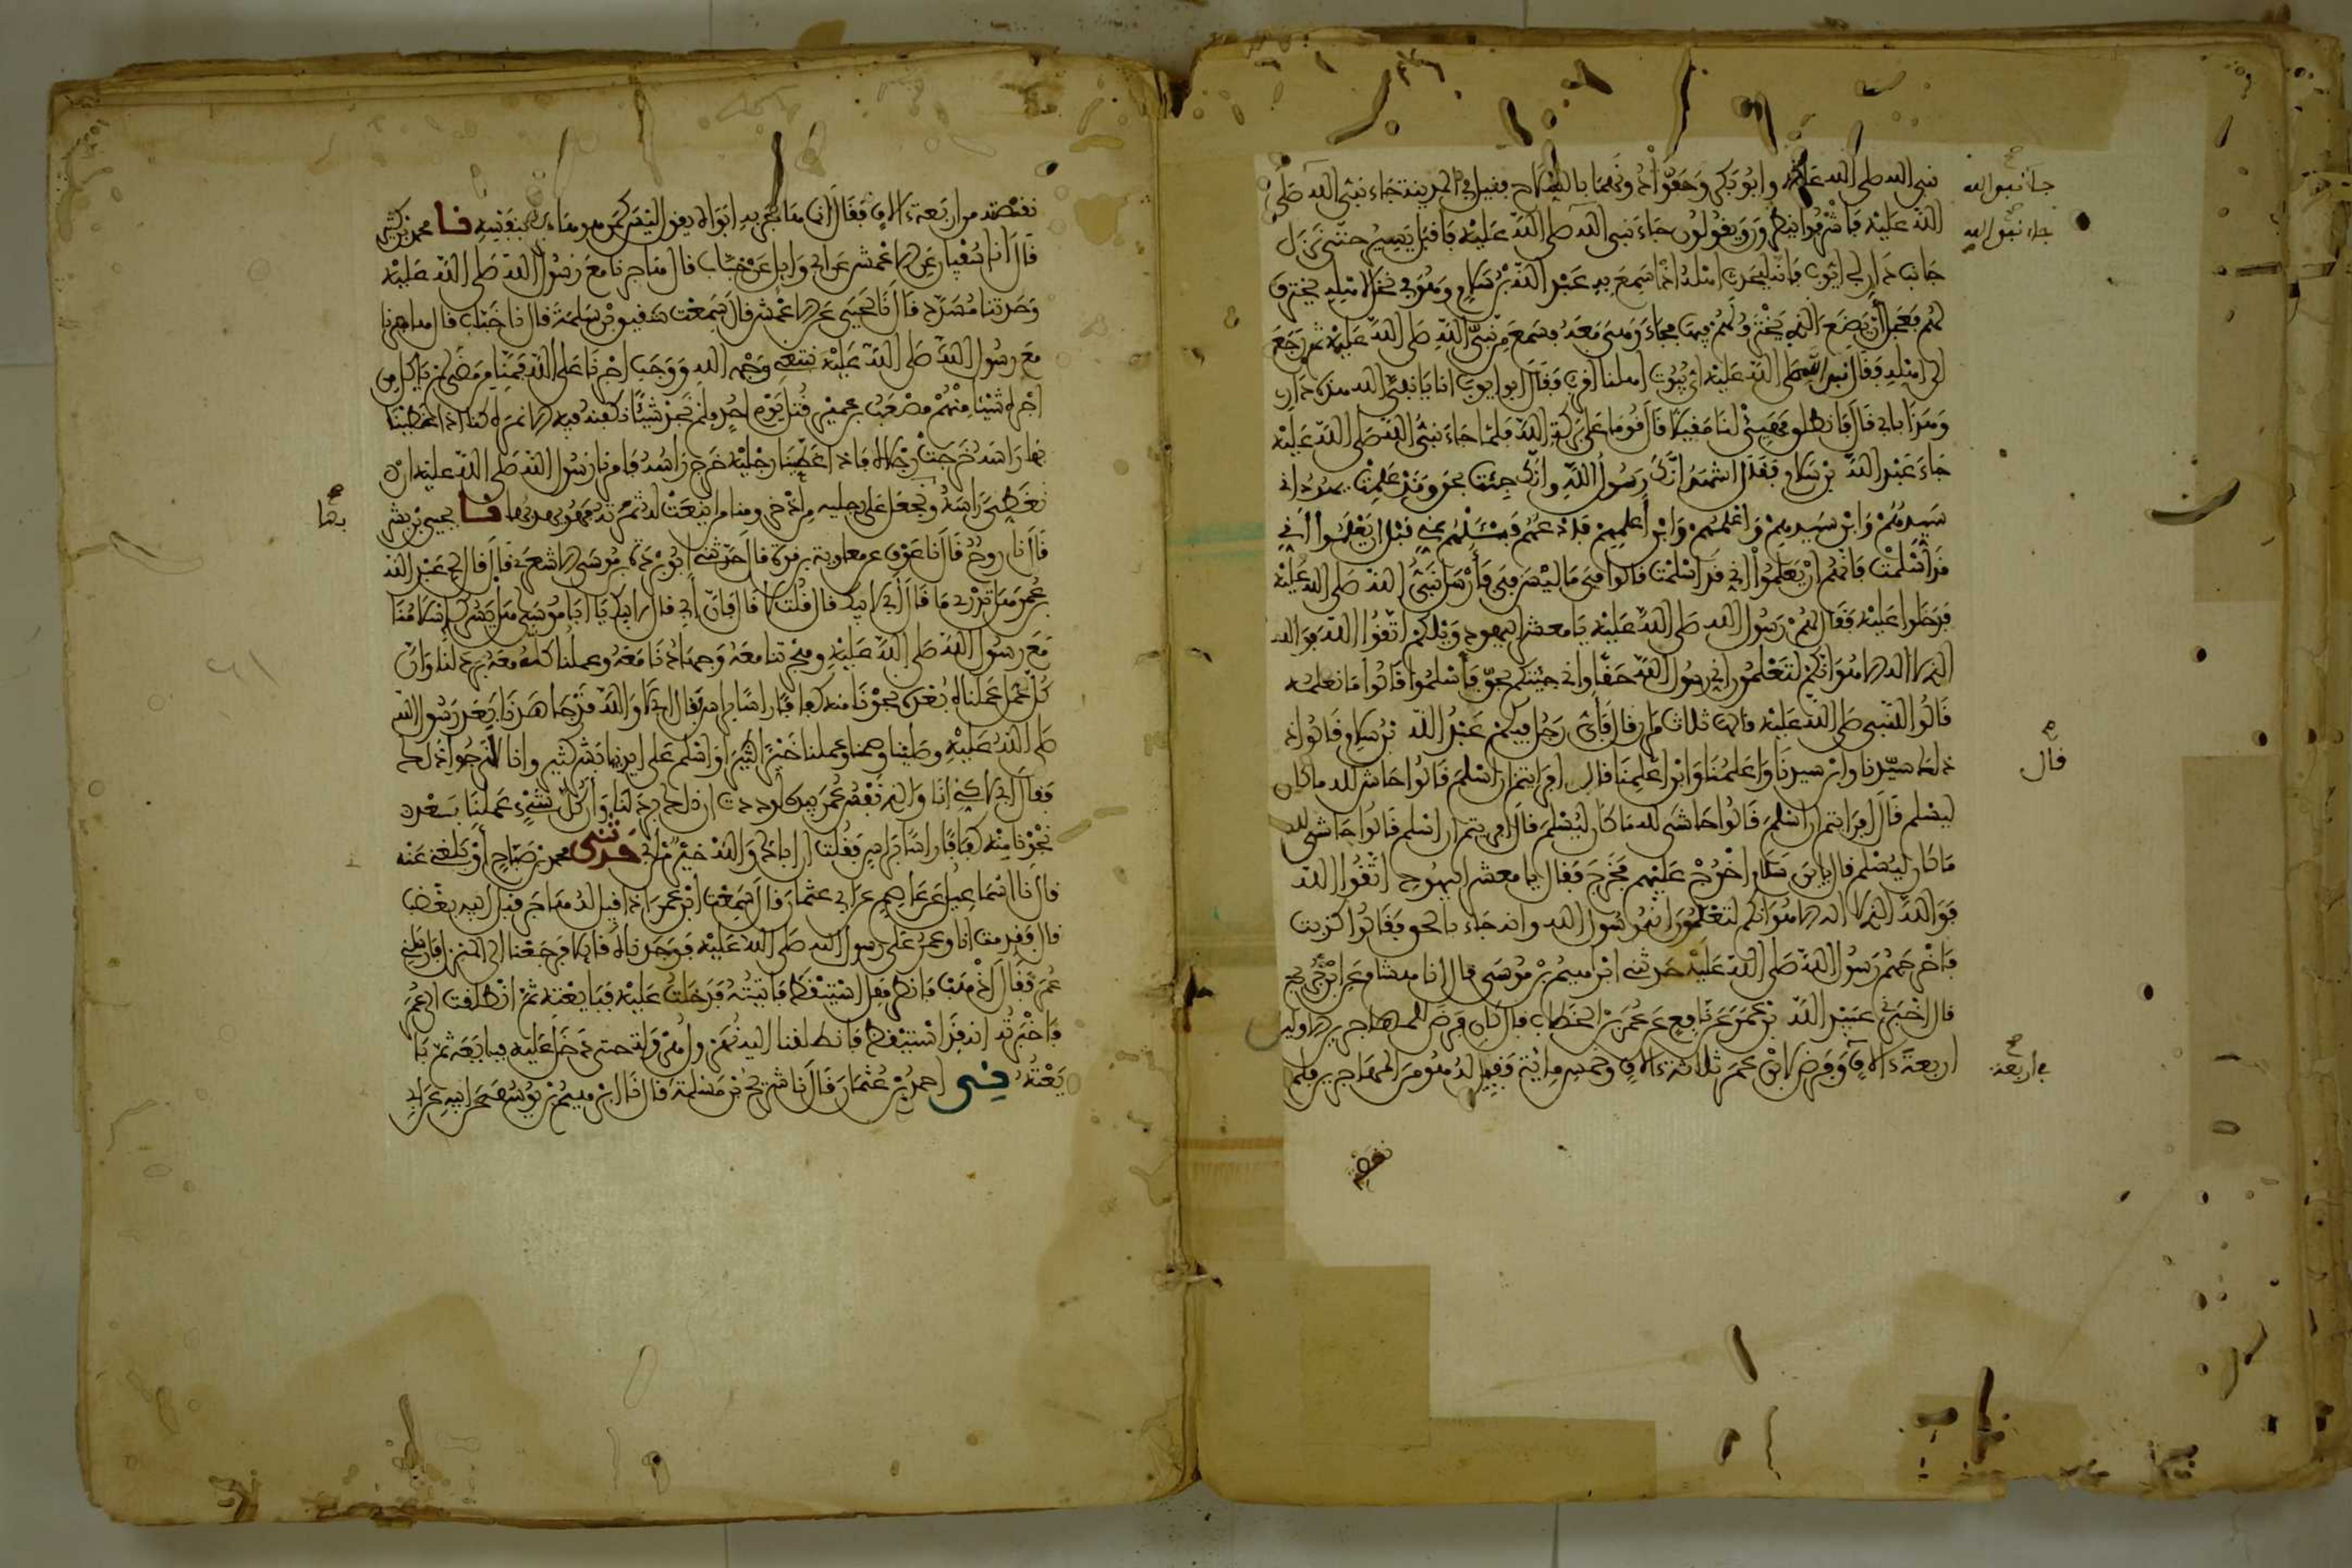 نبي الله صلى الله عليه وأبو بكر وحفوا دونهما بالسلاح فقيل في المدينة جاء نبي الله صلى
الله عليه فأشرفوا ينظرون ويقولون جاء نبي الله صلى الله عليه فأقبل يسير حتى نزل
جانب دار أبي أيوب فإنه ليحدث أهله إذ سمع به عبد الله بن سلام وهو في نخل لأهله يخترف
لهم فعجل أن يضع الذي يخترف لهم فيها فجاء وهي معه فسمع من نبي الله صلى الله عليه ثم رجع
إلى أهله فقال نبي الله صلى الله عليه أي بيوت أهلنا أقرب فقال أبو أيوب أنا يا نبي الله هذه داري
وهذا بابي قال فانطلق فهيئ لنا مقيلا قال قوما على بركة الله فلما جاء نبي الله صلى الله عليه
جاء عبد الله بن سلام فقال أشهد أنك رسول الله وأنك جئت بحق وقد علمت يهود أني
سيدهم وابن سيدهم وأعلمهم وابن أعلمهم فادعهم فسئلهم عني قبل أن يعلموا أني
قد أسلمت فإنهم إن يعلموا أني قد أسلمت قالوا في ما ليس في فأرسل نبي الله صلى الله عليه
فدخلوا عليه فقال لهم رسول الله صلى الله عليه يا معشر اليهود ويلكم اتقوا الله فوالله
الذي لا إله إلا هو إنكم لتعلمون أني رسول الله حقا وأني جئتكم بحق فأسلموا قالوا ما نعلمه
قالوا للنبي صلى الله عليه قالها ثلاث مرار قال فأي رجل فيكم عبد الله بن سلام قالوا
ذلك سيدنا وابن سيدنا وأعلمنا وابن أعلمنا قال أفرأيتم إن أسلم قالوا حاشى لله ما كان
ليسلم قال أفرأيتم إن أسلم قالوا حاشى لله ما كان ليسلم قال أفرأيتم إن أسلم قالوا حاشى لله
ما كان ليسلم قال يا بن سلام اخرج عليهم فخرج فقال يا معشر اليهود اتقوا الله
فوالله الذي لا إله إلا هو إنكم لتعلمون أنه رسول الله وأنه جاء بالحق فقالوا كذبت
فأخرجهم رسول الله صلى الله عليه حدثني إبراهيم بن موسى قال أنا هشام عن ابن جريج
قال أخبرني عبيد الله بن عمر عن نافع عن عمر بن الخطاب قال كان فرض للمهاجرين الأولين
أربعة آلاف وفرض لابن عمر ثلاثة آلاف وخمس مائة فقيل له هو من المهاجرين فلم
نقصته
جاء نبي الله
جاء نبي الله
قال
في أربعة
نقصته من أربعة آلاف فقال إنما هاجر به أبواه يقول ليس كمن هو هاجر بنفسه نا محمد بن كثير
قال أنا سفيان عن الأعمش عن أبي وائل عن خباب قال هاجرنا مع رسول الله صلى الله عليه
وحدثنا مسدد قال نا يحيى عن الأعمش قال سمعت شقيق بن سلمة قال نا خباب قال هاجرنا
مع رسول الله صلى الله عليه نبتغي وجه الله ووجب أجرنا على الله فمنا من مضى لم يأكل من
أجره شيئا منهم مصعب بن عمير قتل يوم أحد فلم نجد شيئا نكفنه فيه إلا نمرة كنا إذا غطينا
بها راسه خرجت رجلاه فإذا غطينا رجليه خرج راسه فأمرنا رسول الله صلى الله عليه أن
نغطي راسه ونجعل على رجليه من إذخر ومنا من أينعت له ثمرته فهو يهدبها نا يحيى بن بشر
قال نا روح قال نا عوف عن معاوية بن قرة قال حدثني أبو بردة بن أبي موسى الأشعري قال قال لي عبد الله
بن عمر هل تدري ما قال أبي لأبيك قال قلت لا قال فإن أبي قال لأبيك يا أبا موسى هل يسرك إسلامنا
مع رسول الله صلى الله عليه وهجرتنا معه وجهادنا معه وعملنا كله معه برد لنا وأن
كل عمل عملناه بعده نجونا منه كفافا راسا براس فقال أبي لا والله قد جاهدنا بعد رسول الله
صلى الله عليه وصلينا وصمنا وعملنا خيرا كثيرا وأسلم على أيدينا بشر كثير وإنا لنرجوا ذلك
فقال أبي لكني أنا والذي نفس عمر بيده لوددت أن ذلك برد لنا وأن كل شيء عملنا بعده
نجونا منه كفافا راسا براس فقلت إن أباك والله خير من أبي حدثني محمد بن صباح أو بلغني عنه
قال نا إسماعيل عن عاصم عن أبي عثمان قال سمعت ابن عمر إذا قيل له هاجر قبل أبيه يغضب
قال قدمت أنا وعمر على رسول الله صلى الله عليه فوجدناه قائلا فرجعنا إلى المنزل فأرسلني
عمر فقال اذهب فانظر هل استيقظ فأتيته فدخلت عليه فبايعته ثم انطلقت إلى عمر
فأخبرته أنه قد استيقظ فانطلقنا إليه نهرول هرولة حتى دخل عليه فبايعه ثم با
يعته ني أحمد بن عثمان قال نا شريح بن مسلمة قال نا إبراهيم بن يوسف عن أبيه عن أبي
بها